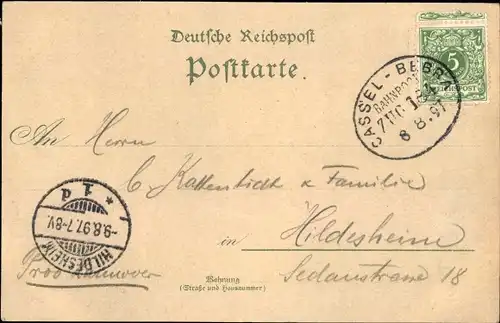 Deutsche Reichspost
Postkarte.
5
REICHSPOST
CASSEL - BEBRA
BAHNPOST
ZUG
8 8.97
An Herrn
C Kattentidt & Familie
in Hildesheim
Sedanstrasse 18
Prov Hannover
* 1 d
-9.8.97.7-8V.
HILDESHEIM
Wohnung
(Straße und Hausnummer)